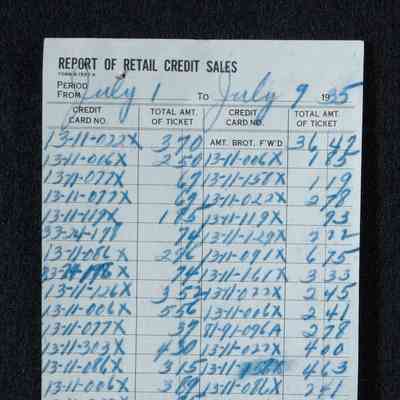 REPORT OF RETAIL CREDIT SALES
PERIOD FROM July 1 TO July 9 1935
CREDIT CARD NO. TOTAL AMT. OF TICKET CREDIT CARD NO. TOTAL AMT. OF TICKET
13-11-022X 370 AMT. BROT. F'W'D 36 42
13-11-016X 250 13-11-006X 185
13-11-077X 69 13-11-158X 119
13-11-077X 69 13-11-022X 278
13-11-119X 185 13-11-119X 93
33-24-198 74 13-11-129X 222
13-11-086X 296 13-11-091X 675
33-24-198X 74 13-11-161X 333
13-11-126X 352 13-11-022X 245
13-11-006X 556 13-11-006X 241
13-11-077X 37 11-91-096A 278
13-11-303X 430 13-11-022X 400
13-11-086X 315 13-11- 463
13-11-006X 389 13-11-086X 241